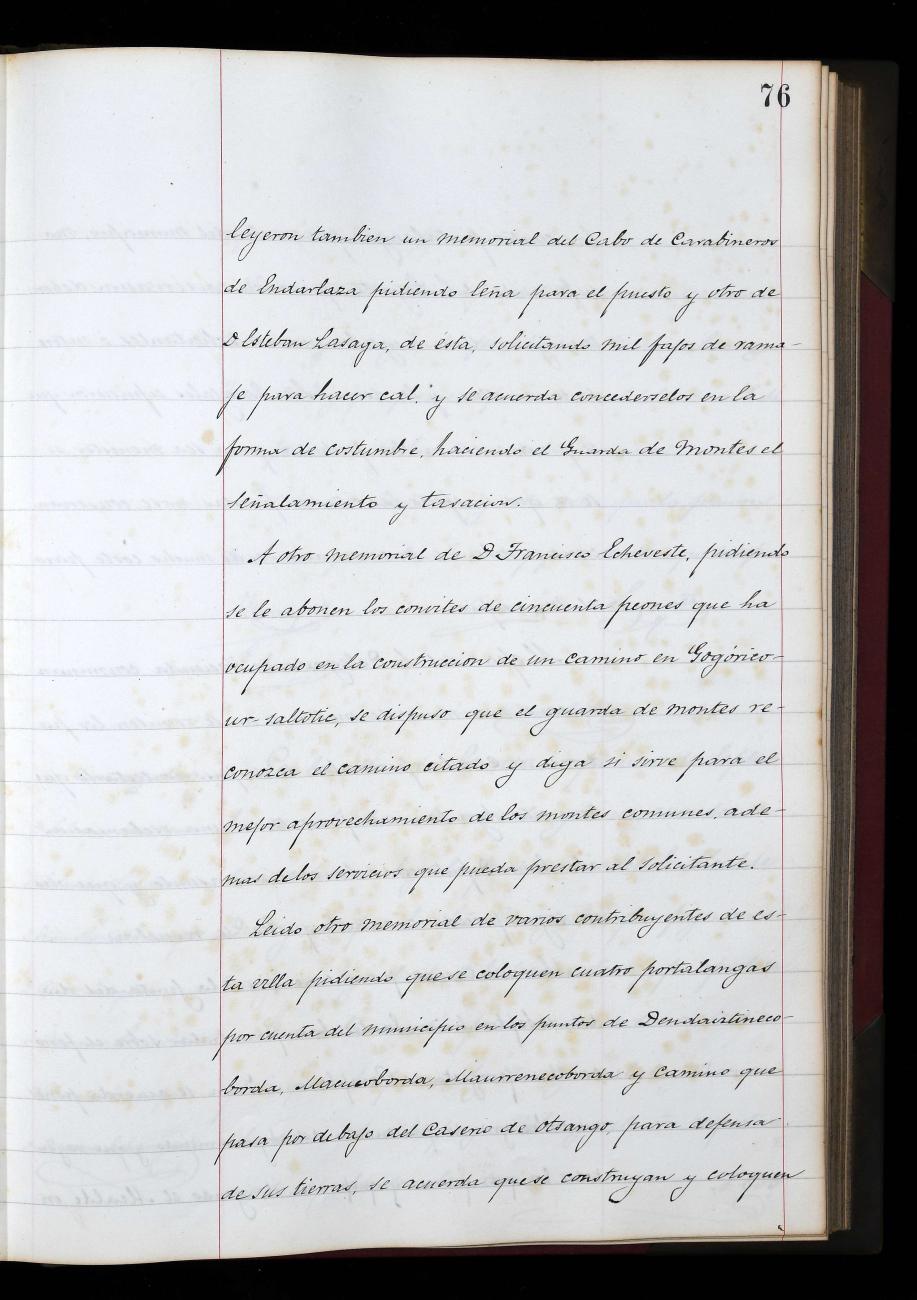 76
leyeron tambien un memorial del Cabo de Carabineros
de Endarlaza pidiendo leña para el puesto y otro de
D Esteban Lasaga, de ésta, solicitando mil fajos de rama-
je para hacer cal. y se acuerda concederselos en la
forma de costumbre, haciendo el Guarda de Montes el
señalamiento y tasacion.
A otro memorial de D Francisco Echeveste, pidiendo
se le abonen los convites de cincuenta peones que ha
ocupado en la construccion de un camino en Gogórico-
ur-saltotic, se dispuso que el guarda de montes re-
conozca el camino citado y diga si sirve para el
mejor aprovechamiento de los montes comunes, ade-
mas de los servicios que pueda prestar al solicitante.
Leido otro memorial de varios contribuyentes de es-
ta villa pidiendo que se coloquen cuatro portalangas
por cuenta del municipio en los puntos de Dendairtineco-
borda, Macucoborda, Maurrenecoborda y camino que
pasa por debajo del Caserio de Otsango, para defensa
de sus tierras, se acuerda que se construyan y coloquen